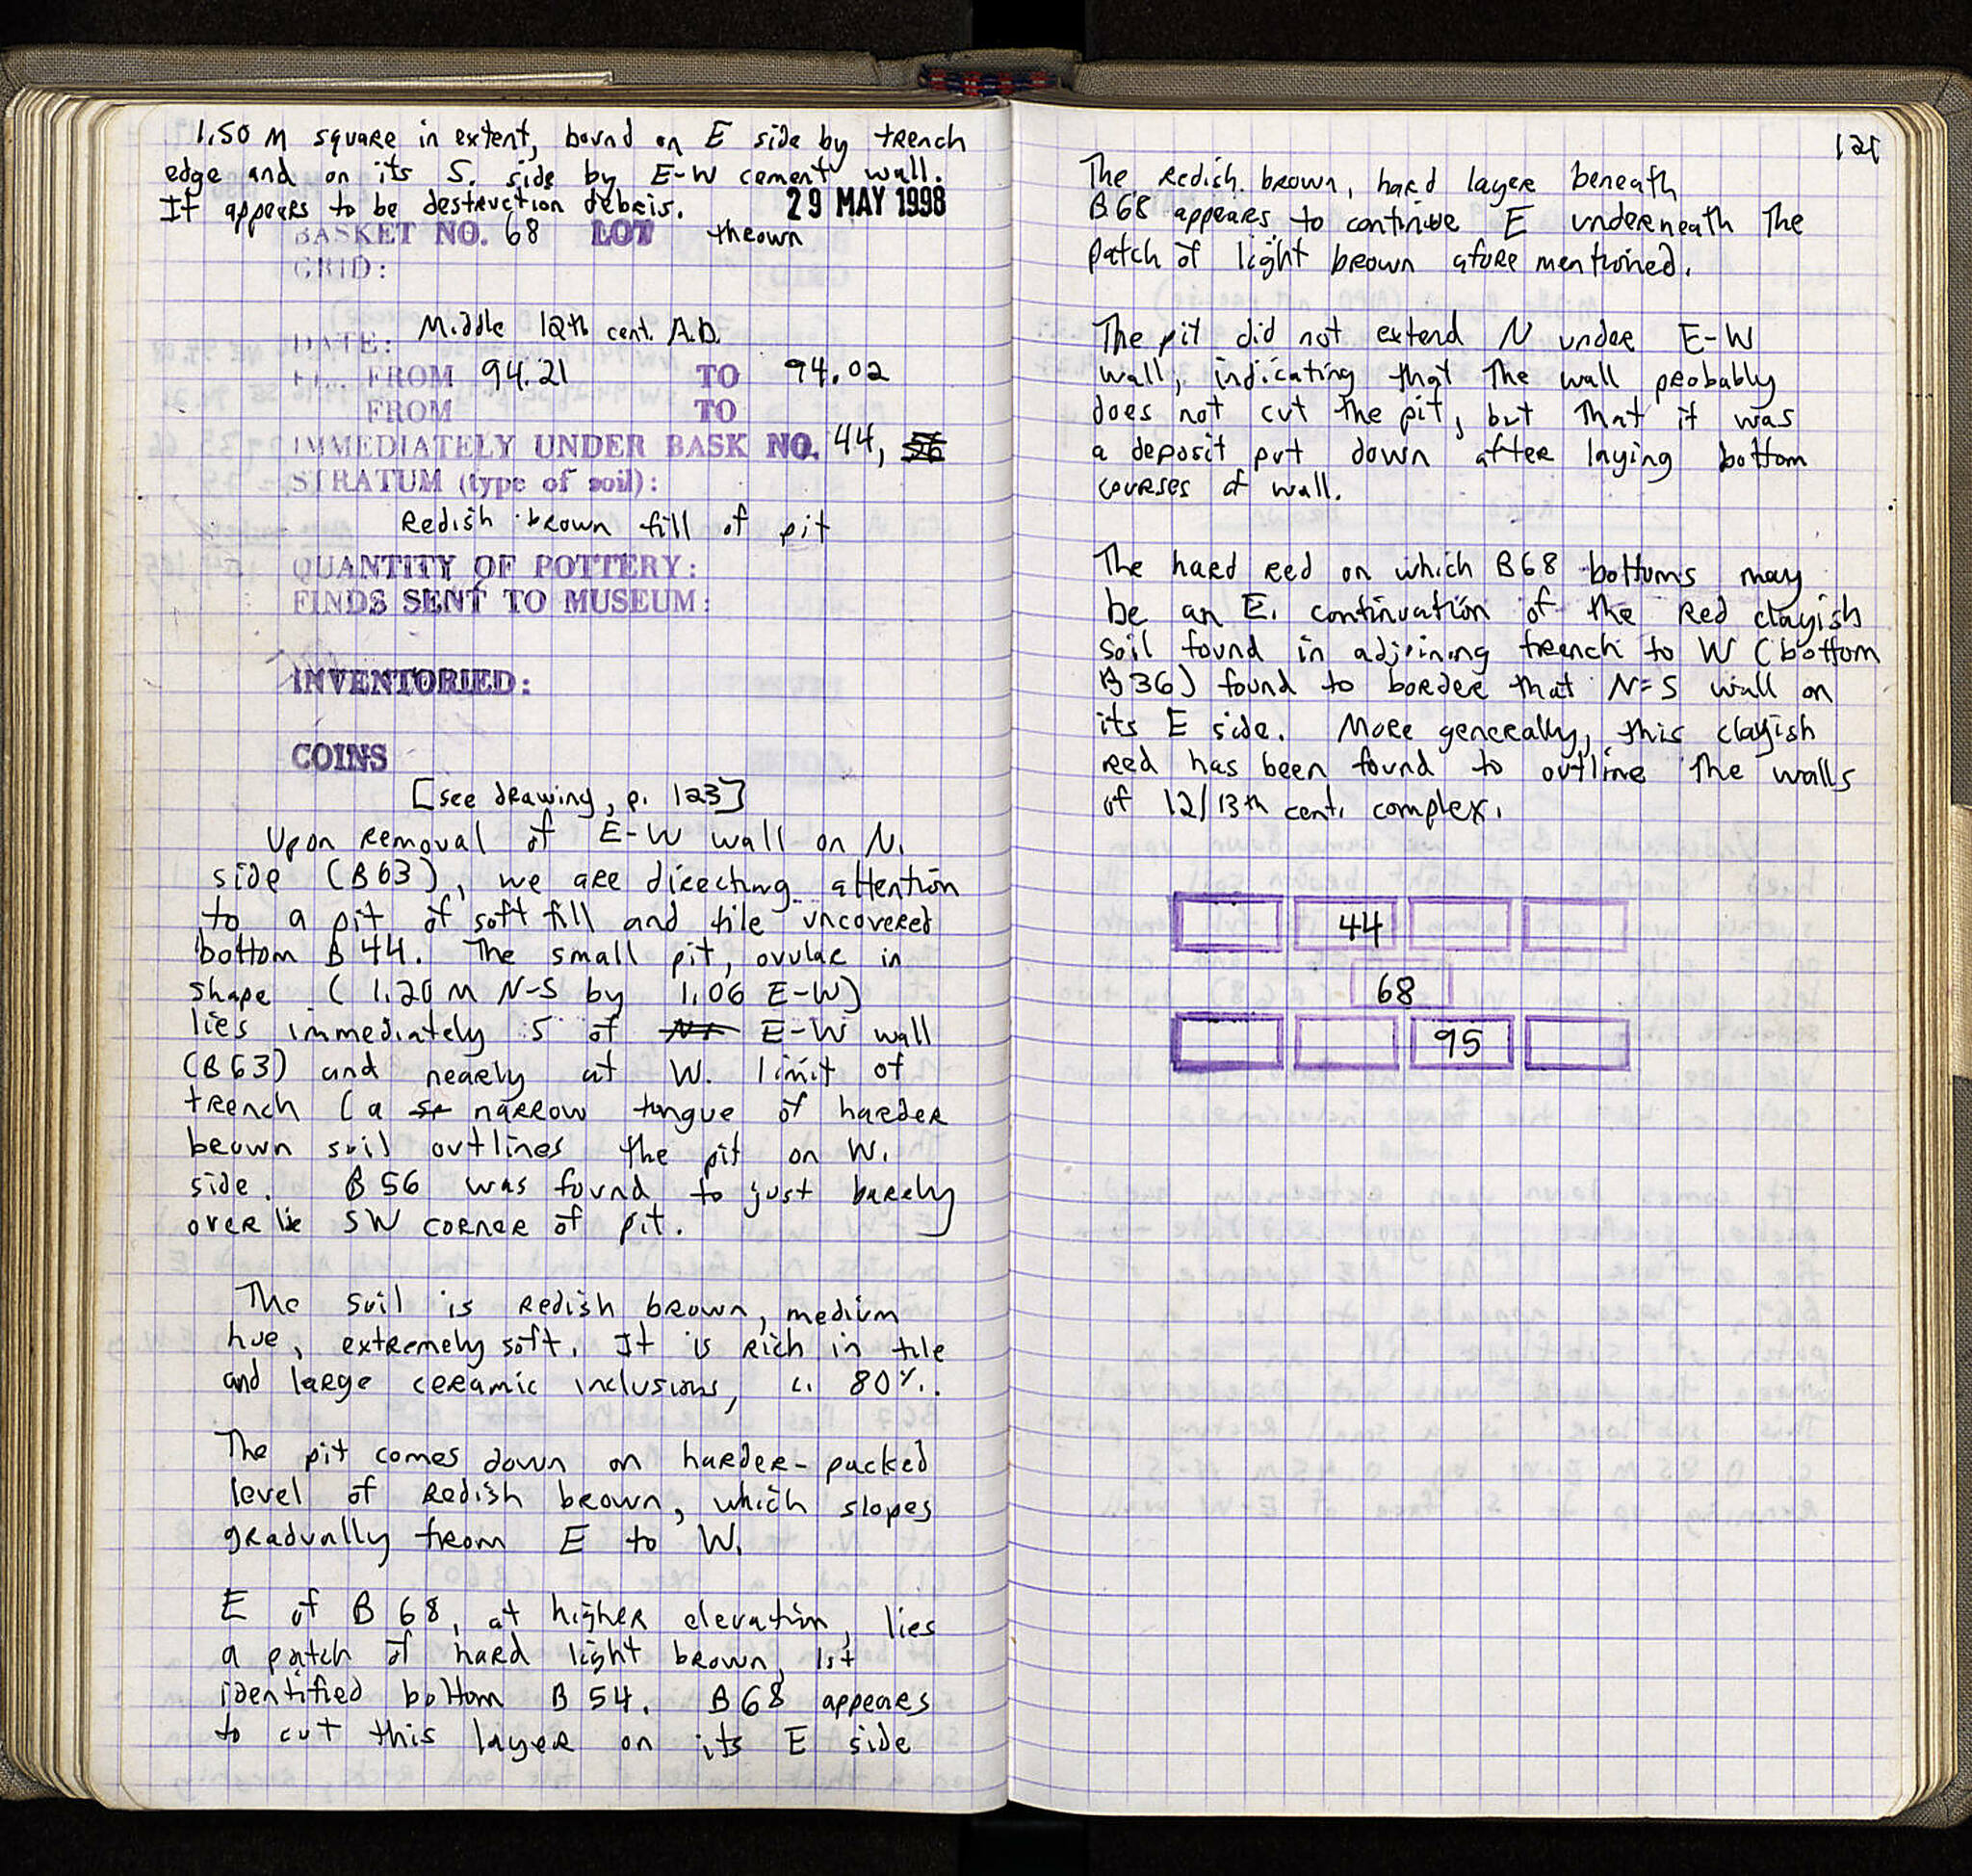 1.50 M square in extent, bound on E side by trench
edge and on its S. side by E-W cement wall.
It appears to be destruction debris. 29 MAY 1998
BASKET NO. 68 LOT thrown
GRID:
DATE: Middle 12th cent. A.D.
EL. FROM 94.21 TO 94.02
FROM TO
IMMEDIATELY UNDER BASK NO. 44, 56
STRATUM (type of soil):
Redish brown fill of pit
QUANTITY OF POTTERY:
FINDS SENT TO MUSEUM:
INVENTORIED:
COINS
[see drawing, p. 123]
Upon removal of E-W wall on N.
side (B63), we are directing attention
to a pit of soft fill and tile uncovered
bottom B 44. The small pit, ovular in
shape (1.20 M N-S by 1.06 E-W)
lies immediately S of E-W wall
(B63) and nearly at W. limit of
trench (a narrow tongue of harder
brown soil outlines the pit on W.
side. B 56 was found to just barely
overlie SW corner of pit.
The soil is redish brown, medium
hue, extremely soft. It is rich in tile
and large ceramic inclusions, c. 80%.
The pit comes down on harder-packed
level of redish brown, which slopes
gradually from E to W.
E of B 68, at higher elevation, lies
a patch of hard light brown, 1st
identified bottom B 54. B 68 appears
to cut this layer on its E side
121
The redish brown, hard layer beneath
B68 appears to continue E underneath the
patch of light brown afore mentioned.
The pit did not extend N under E-W
wall, indicating that the wall probably
does not cut the pit, but that it was
a deposit put down after laying bottom
courses of wall.
The hard red on which B68 bottoms may
be an E. continuation of the red clayish
soil found in adjoining trench to W (bottom
B36) found to border that N-S wall on
its E side. More generally, this clayish
red has been found to outline the walls
of 12/13th cent. complex.
44
68
95